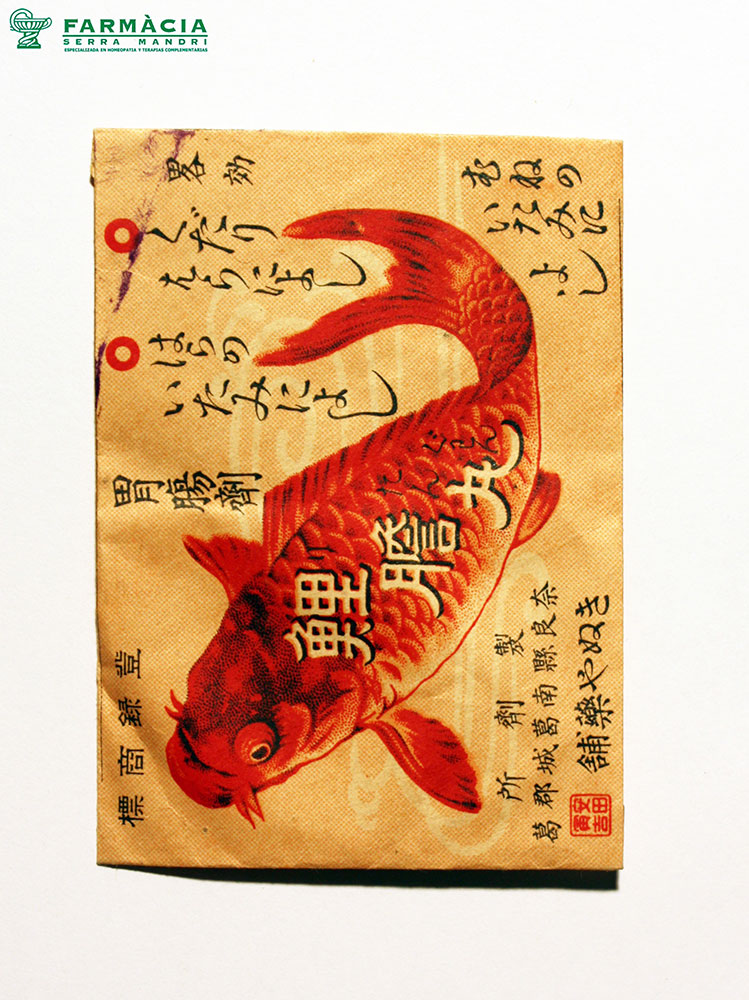 効畧
くだり
はらによし
はらの
いたみによし
むねの
いたみに
よし
胃腸劑
鯉膽丸
り たん ぐわん
登録商標
奈良縣南葛城郡葛
製劑所
きぬや藥舗
FARMÀCIA
SERRA MANDRI
ESPECIALIZADA EN HOMEOPATIA Y TERAPIAS COMPLEMENTARIAS